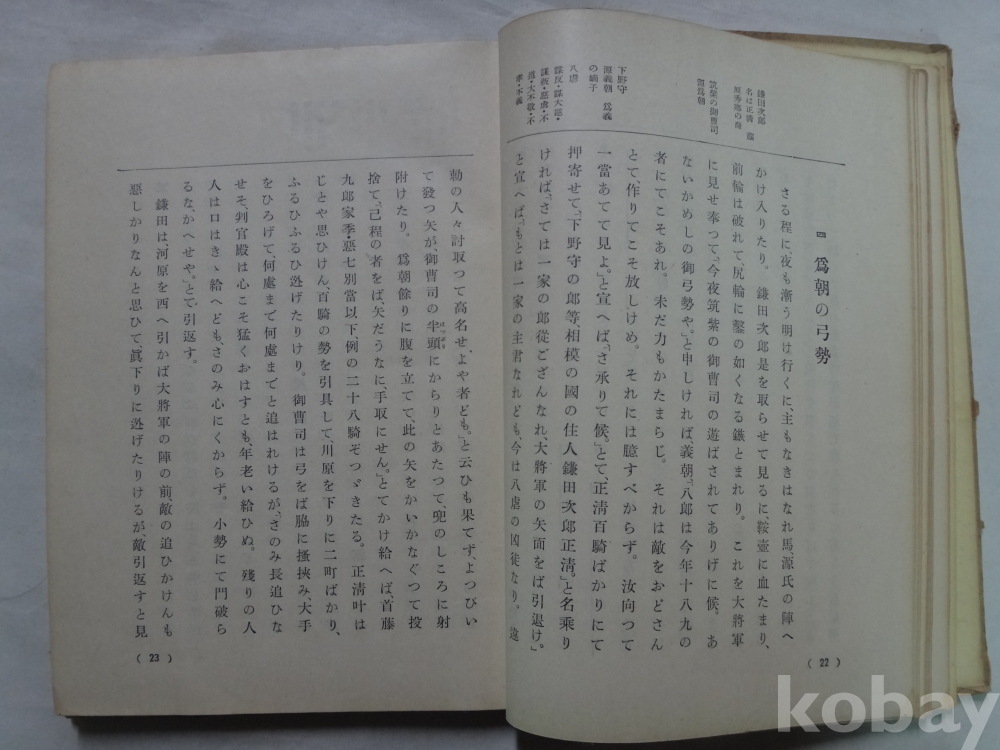 鎌田次郎
名は正淸 藤
原秀郷の裔
筑紫の御曹司
源爲朝
下野守
源義朝 爲義
の嫡子
八虐
謀反・謀大逆・
謀叛・惡虐・不
道・大不敬・不
孝・不義
爲朝の弓勢
さる程に夜も漸う明け行くに、主もなきはなれ馬、源氏の陣へ
かけ入りたり。鎌田次郎是を取らせて見るに、鞍壺に血たまり、
前輪は破れて、尻輪に鑿の如くなる鏃とまれり。これを大將軍
に見せ奉つて、「今夜筑紫の御曹司の遊ばされてありげに候。あ
ないかめしの御弓勢や。」と申しければ、義朝、「八郎は今年十八九の
者にてこそあれ。未だ力もかたまらじ。それは敵をおどさん
とて作りてこそ放しけめ。それには臆すべからず。汝向つて
一當あてて見よ。」と宣へば、「さ承りて候。」とて、正淸百騎ばかりにて
押寄せて、「下野守の郎等、相模の國の住人鎌田次郎正淸。」と名乘り
ければ、「さては一家の郎從ござんなれ、大將軍の矢面をば引退け。」
と宣へば、「もとは一家の主君なれども、今は八虐の凶徒なり。違
( 22 )
勅の人々討取つて高名せよや者ども。」と云ひも果てず、よつぴい
て發つ矢が、御曹司の半頭にからりとあたつて、兜のしころに射
附けたり。爲朝餘りに腹を立てて、此の矢をかいかなぐつて投
捨て、「己程の者をば、矢だうなに、手取にせん。」とてかけ給へば、首藤
九郎家季・惡七別當以下、例の二十八騎ぞつゞきたる。正淸叶は
じとや思ひけん、百騎の勢を引具して、川原を下りに二町ばかり、
ふるひふるひ迯げたりけり。御曹司は弓をば脇に搔挾み、大手
をひろげて、何處まで何處までと追はれけるが、「さのみ長追ひな
せそ、判官殿は心こそ猛くおはすとも、年老い給ひぬ。殘りの人
人は口はきゝ給へども、さのみ心にくからず。小勢にて門破ら
るな、かへせや。」とて、引返す。
鎌田は、河原を西へ引かば大將軍の陣の前、敵の追ひかけんも
惡しかりなんと思ひて、眞下りに迯げたりけるが、敵引返すと見
( 23 )
kobay